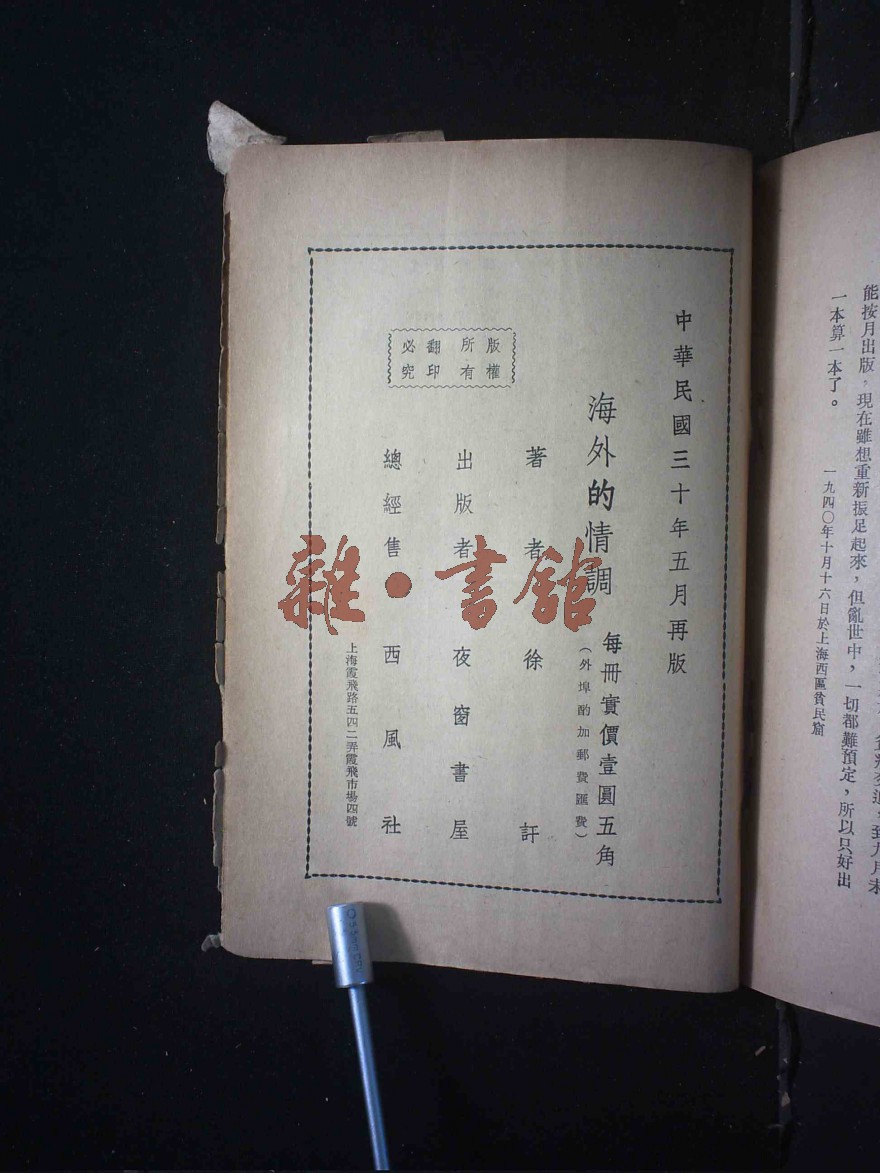 能按月出版，現在雖想重新振足起來，但亂世中，一切都難預定，所以只好出
一本算一本了。
一九四〇年十月十六日於上海西區貧民窟
中華民國三十年五月再版
海外的情調
每冊實價壹圓五角
（外埠酌加郵費匯費）
著者 徐訏
出版者 夜窗書屋
總經售 西風社
上海霞飛路五四二弄霞飛市場四號
版權所有
翻印必究
雜·書館